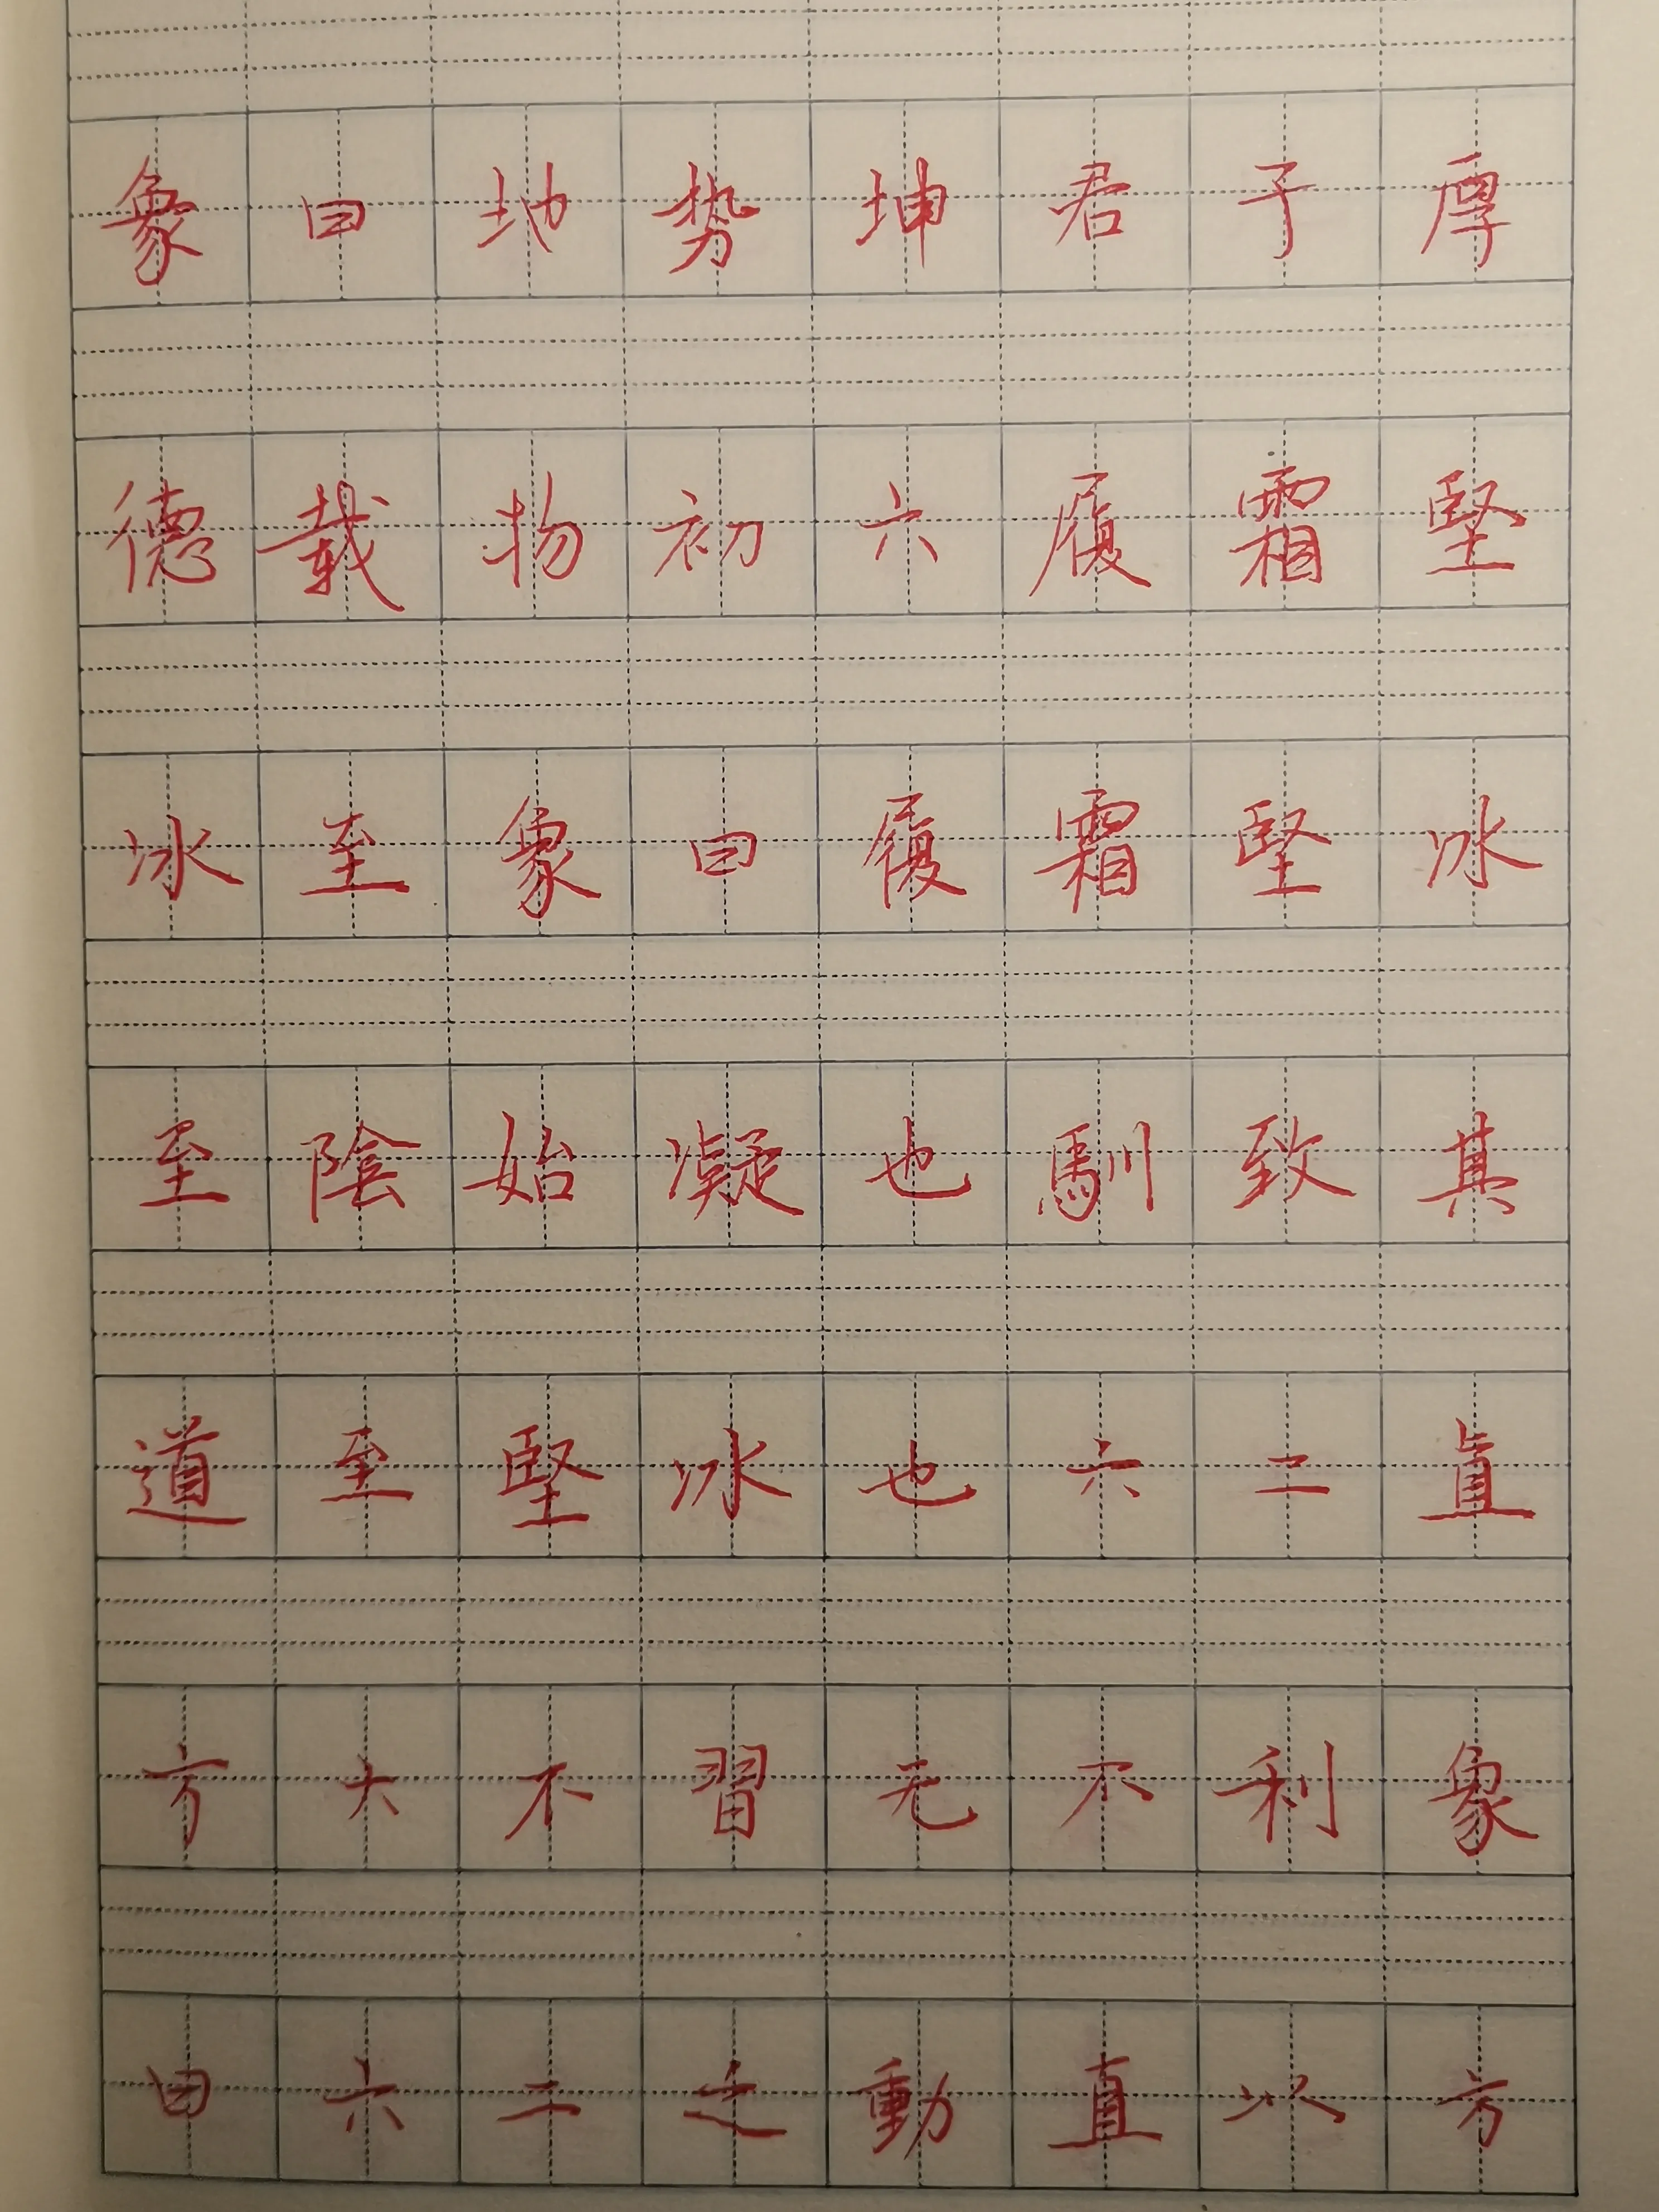 象曰地势坤君子厚
德载物初六履霜堅
冰至象曰履霜堅冰
至陰始凝也馴致其
道至堅冰也六二直
方大不習无不利象
曰六二之動直以方